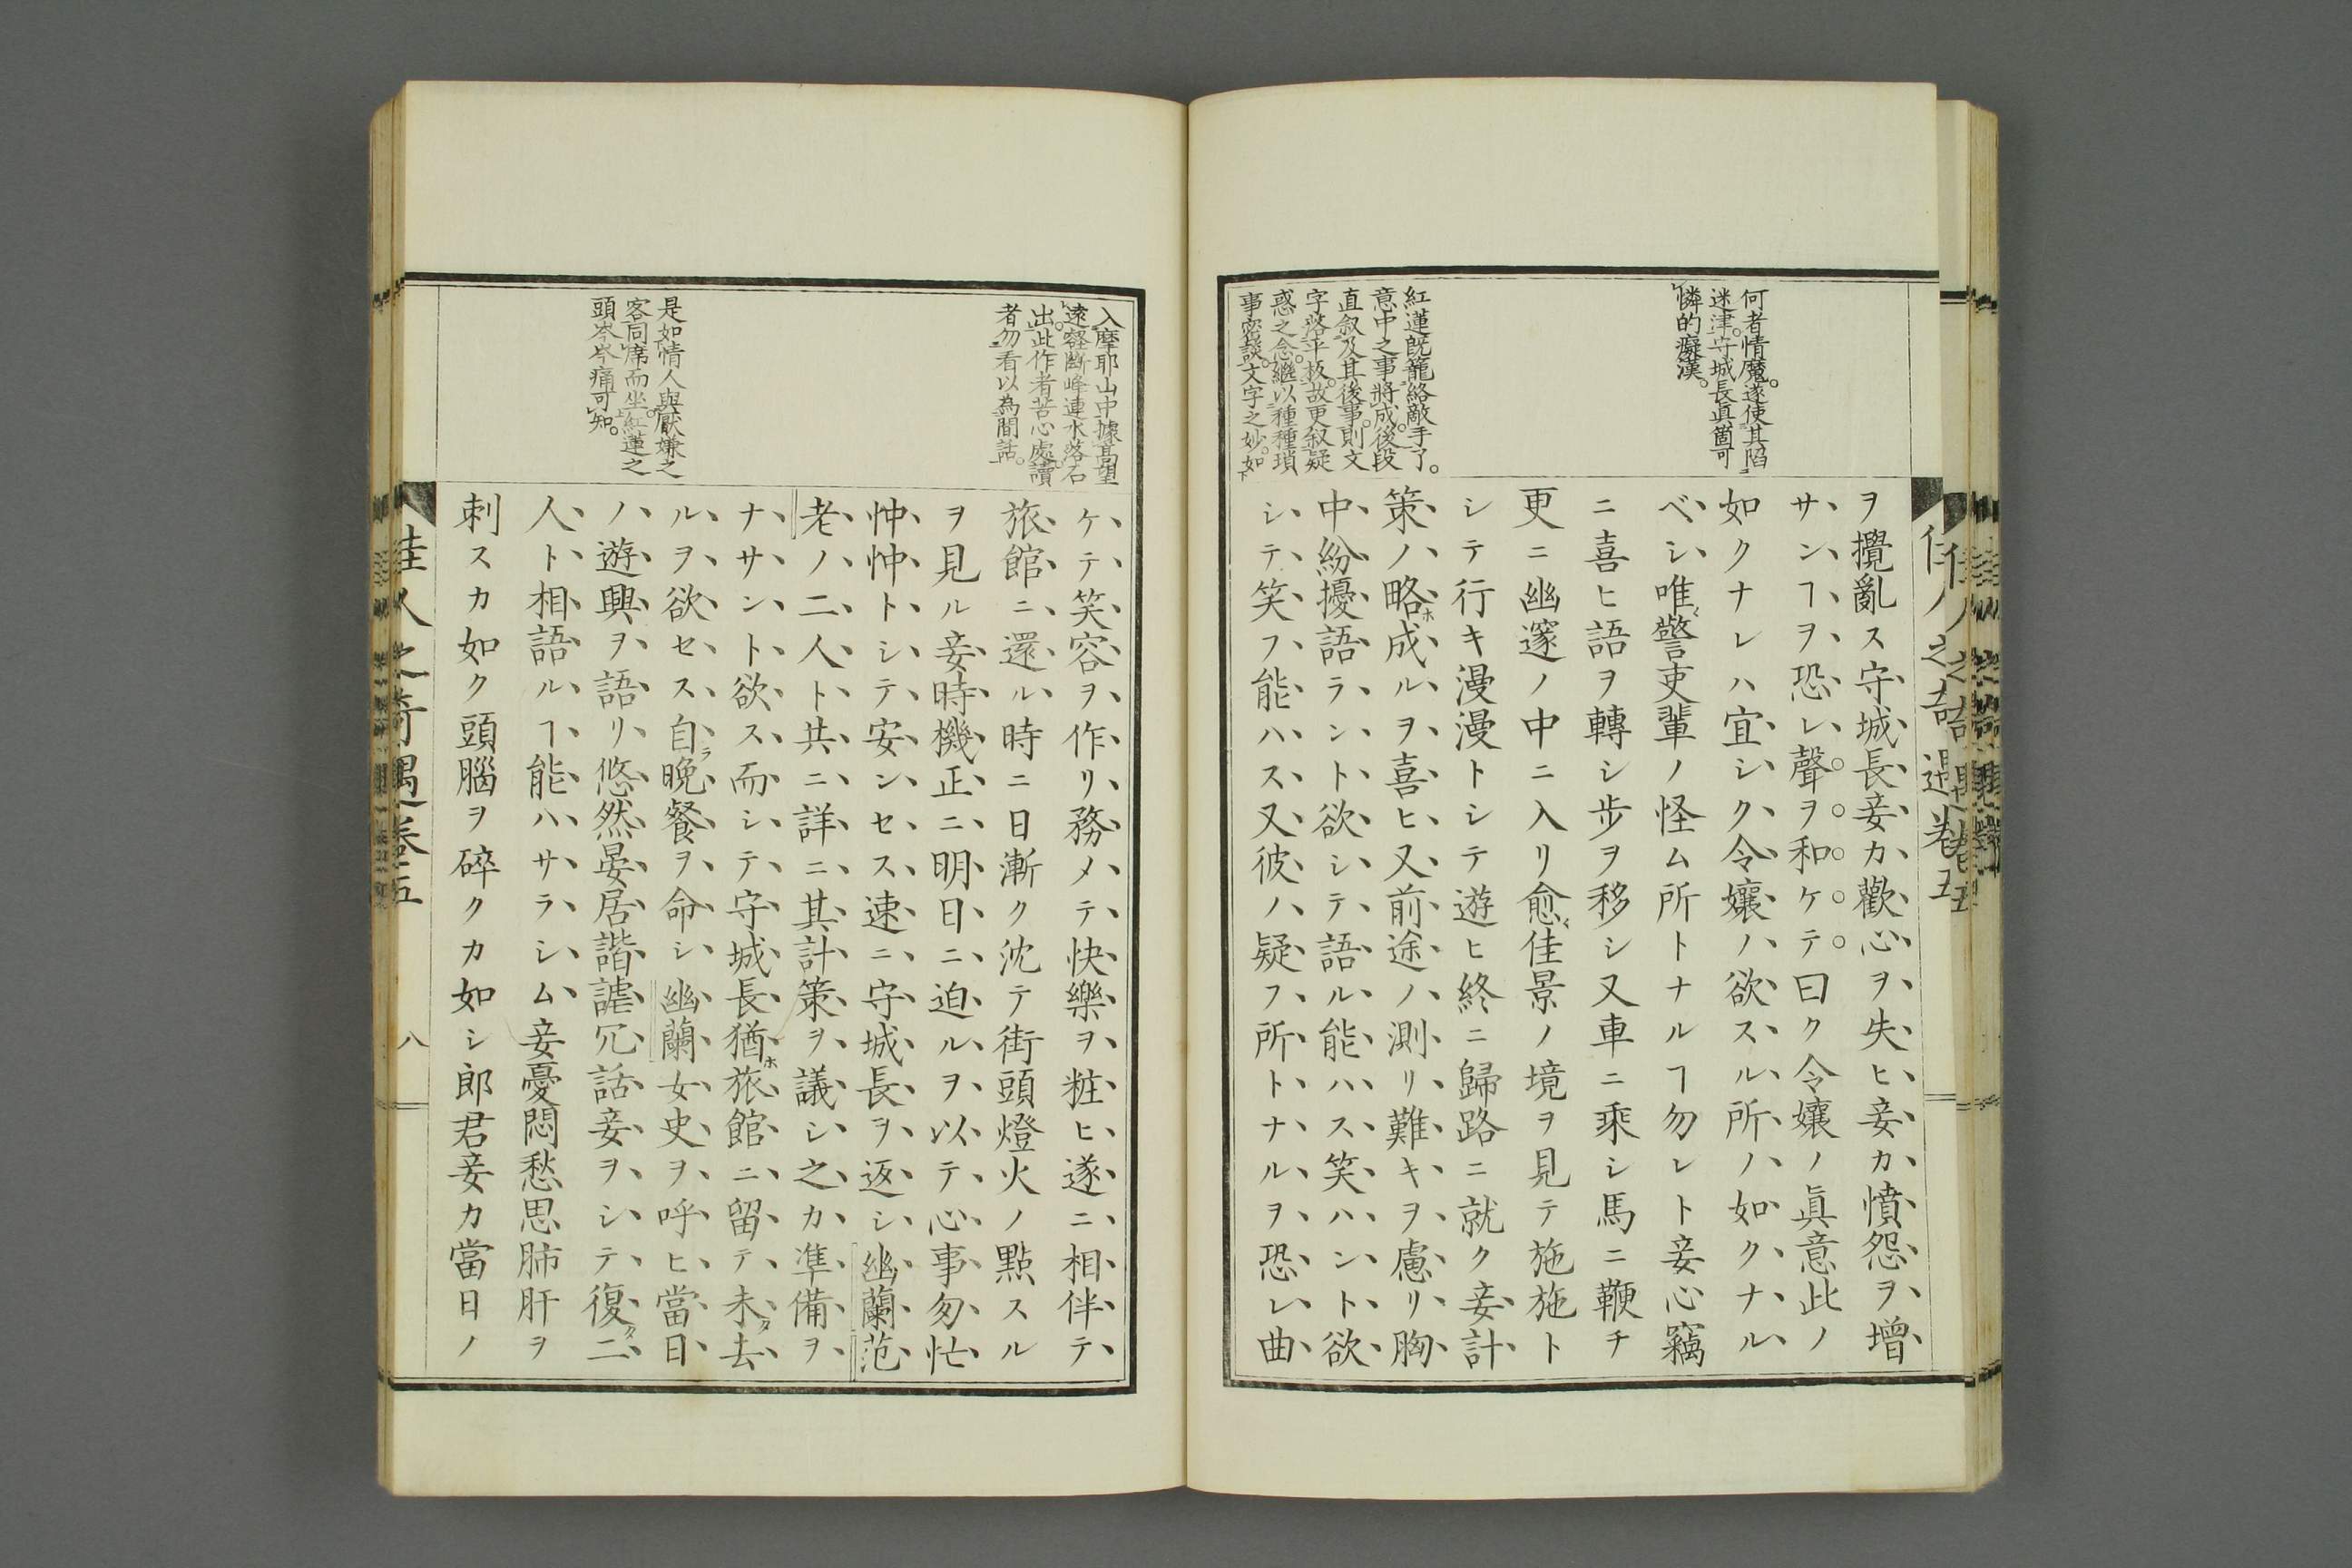 佳人之奇遇卷五
何者情魔。遂使其陷
迷津。守城長眞箇可
憐的癡漢。
紅蓮既籠絡敵手了。
意中之事將成。後段
直叙及其後事。則文
字畧平板。故更叙疑
惑之念。繼以種種瑣
事密談。文字之妙。如
ヲ攪亂ス守城長妾カ歡心ヲ失ヒ妾カ憤怨ヲ增
サンヿヲ恐レ聲ヲ和ケテ曰ク令孃ノ眞意此ノ
如クナレハ宜シク令孃ノ欲スル所ノ如クナル
ベシ唯警吏輩ノ怪ム所トナルヿ勿レト妾心竊
ニ喜ヒ語ヲ轉シ步ヲ移シ又車ニ乘シ馬ニ鞭チ
更ニ幽邃ノ中ニ入リ愈佳景ノ境ヲ見テ施施ト
シテ行キ漫漫トシテ遊ヒ終ニ歸路ニ就ク妾計
策ノ略ホ成ルヲ喜ヒ又前途ノ測リ難キヲ慮リ胸
中紛擾語ラント欲シテ語ル能ハス笑ハント欲
シテ笑フ能ハス又彼ノ疑フ所トナルヲ恐レ曲
入摩耶山中據高望
遠。經斷峰連水落石
出。此作者苦心處。讀
者勿看以為閒話。
是如情人與厭嫌之
客同席而坐。紅蓮之
頭岑岑痛可知。
ケテ笑容ヲ作リ務メテ快樂ヲ粧ヒ遂ニ相伴テ
旅館ニ還ル時ニ日漸ク沈テ街頭燈火ノ點スル
ヲ見ル妾時機正ニ明日ニ迫ルヲ以テ心事匆忙
忡忡トシテ安ンセス速ニ守城長ヲ返シ幽蘭范
老ノ二人ト共ニ詳ニ其計策ヲ議シ之カ準備ヲ
ナサント欲ス而シテ守城長猶ホ旅館ニ留テ未タ去
ルヲ欲セス自ラ晚餐ヲ命シ幽蘭女史ヲ呼ヒ當日
ノ遊興ヲ語リ悠然晏居諧謔冗話妾ヲシテ復タ二
人ト相語ルヿ能ハサラシム妾憂悶愁思肺肝ヲ
刺スカ如ク頭腦ヲ碎クカ如シ郎君妾カ當日ノ
佳人之奇遇卷五
八